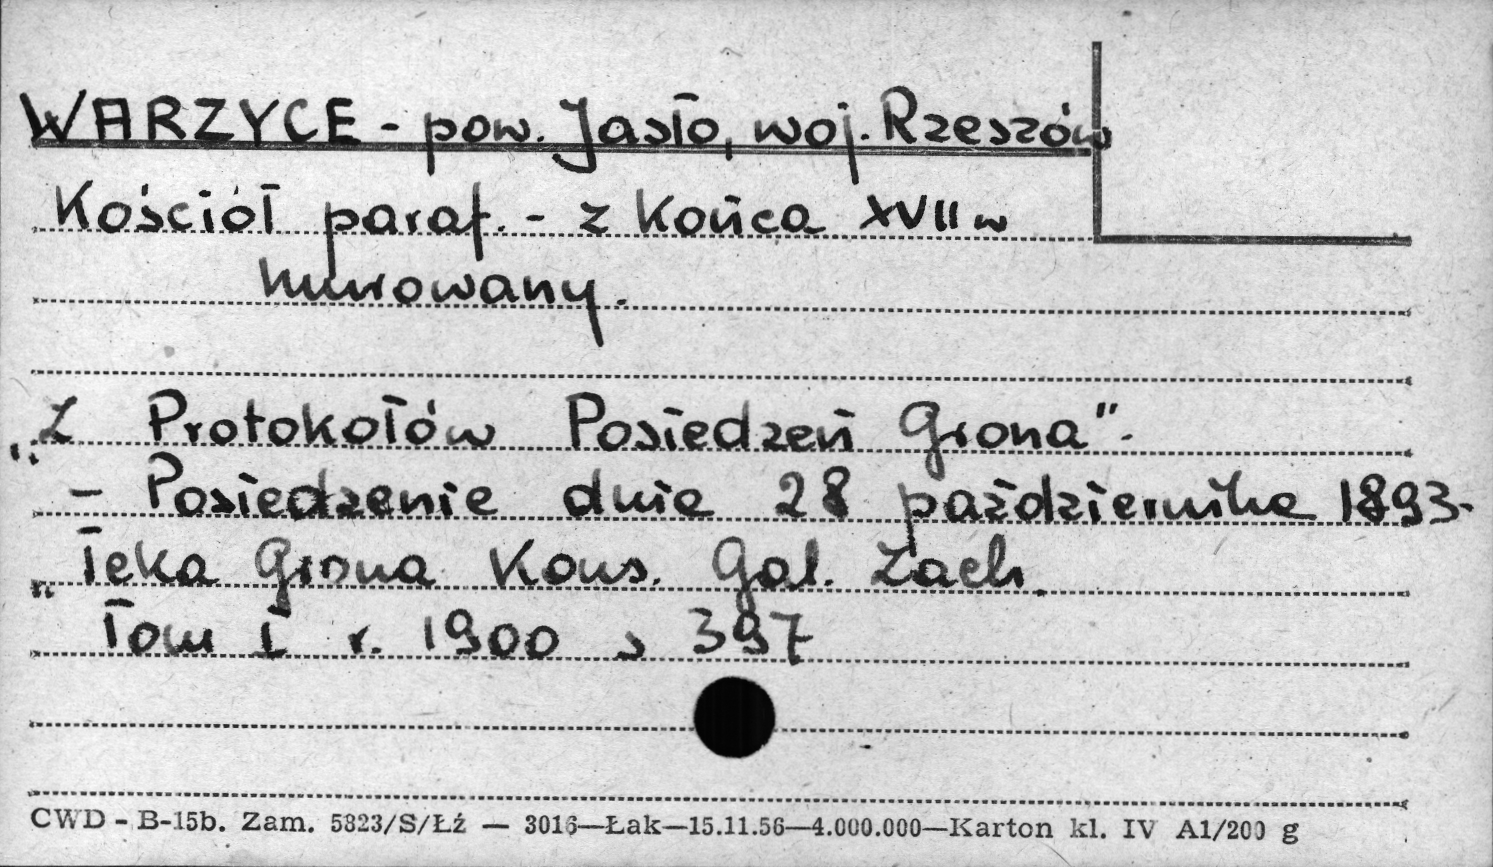 WARZYCE - pow. Jasło, woj. Rzeszów
Kościół paraf. - z końca XVII w
murowany.
„Z Protokołów Posiedzeń Grona".
- Posiedzenie dnia 28 października 1893.
„Teka Grona Kons. Gal. Zach.
Tom I r. 1900 s 397
CWD - B-15b. Zam. 5823/S/Łź — 3016—Łak—15.11.56—4.000.000—Karton kl. IV A1/200 g